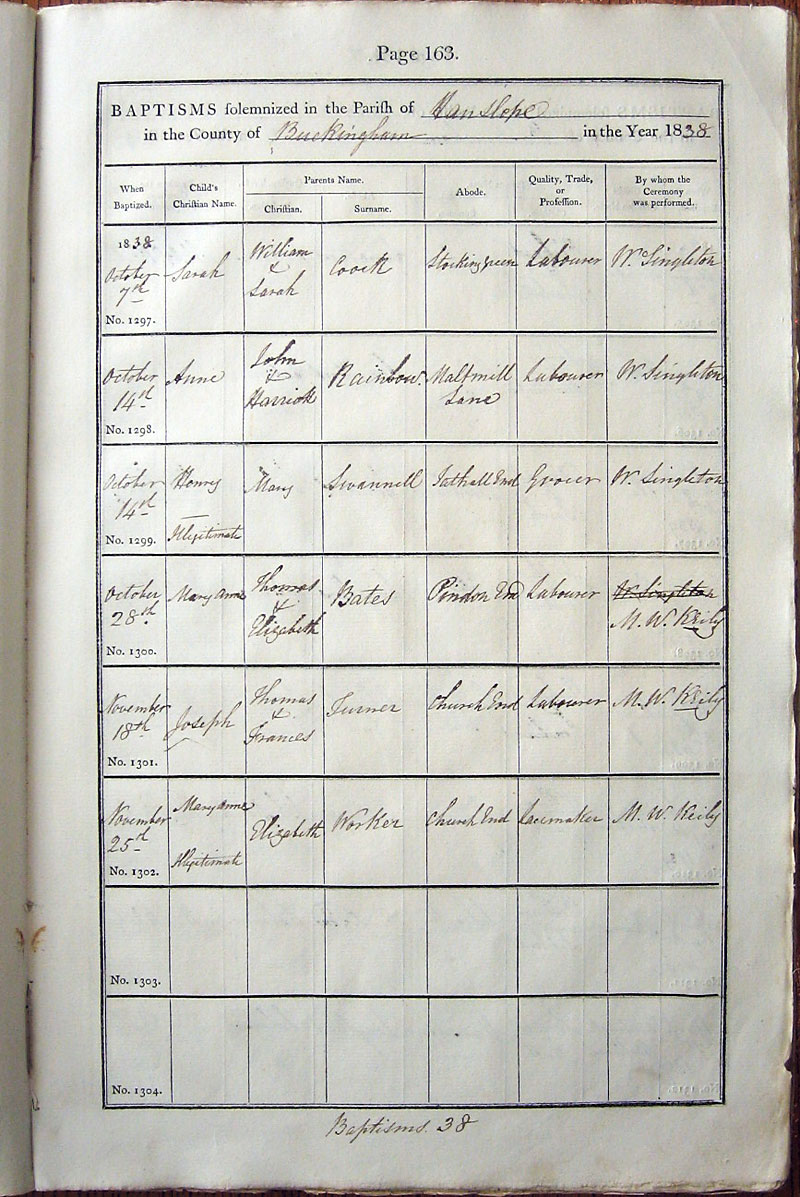 Page 163.
BAPTISMS solemnized in the Parish of Hanslope
in the County of Buckingham in the Year 1838
When Baptized.
Child's Christian Name.
Parents Name.
Christian.
Surname.
Abode.
Quality, Trade, or Profession.
By whom the Ceremony was performed.
1838
October 7th
No. 1297.
Sarah
William & Sarah
Coock
Stockingreen
Labourer
W. Singleton
October 14th
No. 1298.
Anne
John & Harriott
Rainbow.
Maltmill Lane
Labourer
W. Singleton
October 14th
No. 1299.
Henry
Illegitimate
Mary
Swannell
Tathall End
Grocer
W. Singleton
October 28th.
No. 1300.
Mary Anne
Thomas & Elizabeth
Bates
Pindon End
Labourer
W. Singleton
M. W. Keily
November 18th
No. 1301.
Joseph
Thomas & Frances
Turner
Church End
Labourer
M. W. Keily
November 25th
No. 1302.
Mary Anne
Illegitimate
Elizabeth
Worker
Church End
Lacemaker
M. W. Keily
No. 1303.
No. 1304.
Baptisms. 38